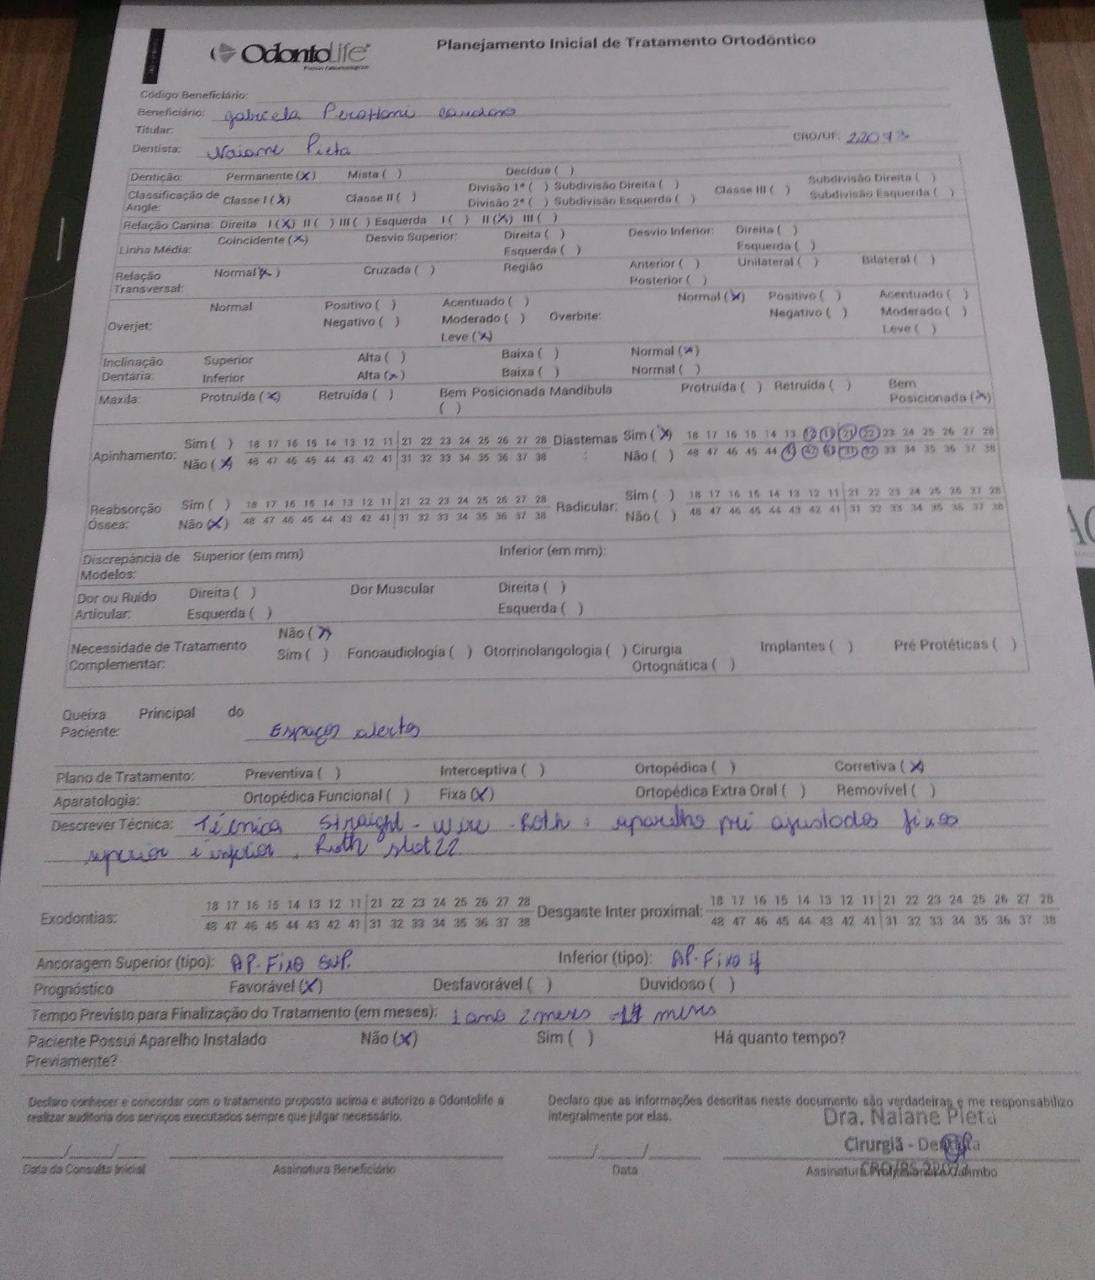 OdontoLife
Planejamento Inicial de Tratamento Ortodôntico
Código Beneficiário:
Beneficiário: gabriela
Titular:
Dentista: Naiane Pieta CRO/UF: 22073
Dentição: Permanente (x) Mista ( ) Decídua ( )
Classificação de Angle: Classe I (x) Classe II ( ) Divisão 1ª ( ) Subdivisão Direita ( ) Classe III ( ) Subdivisão Direita ( )
Divisão 2ª ( ) Subdivisão Esquerda ( ) Subdivisão Esquerda ( )
Relação Canina: Direita I (x) II ( ) III ( ) Esquerda I ( ) II (x) III ( )
Linha Média: Coincidente (x) Desvio Superior: Direita ( ) Desvio Inferior: Direita ( )
Esquerda ( ) Esquerda ( )
Relação Transversal: Normal (x) Cruzada ( ) Região Anterior ( ) Unilateral ( ) Bilateral ( )
Posterior ( )
Overjet: Normal Positivo ( ) Acentuado ( ) Overbite: Normal (x) Positivo ( ) Acentuado ( )
Negativo ( ) Moderado ( ) Negativo ( ) Moderado ( )
Leve (x) Leve ( )
Inclinação Dentária: Superior Alta ( ) Baixa ( ) Normal (x)
Inferior Alta (x) Baixa ( ) Normal ( )
Maxila: Protruída (x) Retruída ( ) Bem Posicionada ( ) Mandíbula Protruída ( ) Retruída ( ) Bem Posicionada (x)
Apinhamento: Sim ( ) 18 17 16 15 14 13 12 11 21 22 23 24 25 26 27 28 Diastemas: Sim (x) 18 17 16 15 14 13 12 11 21 22 23 24 25 26 27 28
Não (x) 48 47 46 45 44 43 42 41 31 32 33 34 35 36 37 38 Não ( ) 48 47 46 45 44 43 42 41 31 32 33 34 35 36 37 38
Reabsorção Óssea: Sim ( ) 18 17 16 15 14 13 12 11 21 22 23 24 25 26 27 28 Radicular: Sim ( ) 18 17 16 15 14 13 12 11 21 22 23 24 25 26 27 28
Não (x) 48 47 46 45 44 43 42 41 31 32 33 34 35 36 37 38 Não ( ) 48 47 46 45 44 43 42 41 31 32 33 34 35 36 37 38
Discrepância de Modelos: Superior (em mm) Inferior (em mm):
Dor ou Ruído Articular: Direita ( ) Dor Muscular Direita ( )
Esquerda ( ) Esquerda ( )
Necessidade de Tratamento Complementar: Não (x)
Sim ( ) Fonoaudiologia ( ) Otorrinolangologia ( ) Cirurgia Ortognática ( ) Implantes ( ) Pré Protéticas ( )
Queixa Principal do
Paciente: Espaços abertos
Plano de Tratamento: Preventiva ( ) Interceptiva ( ) Ortopédica ( ) Corretiva (x)
Aparatologia: Ortopédica Funcional ( ) Fixa (x) Ortopédica Extra Oral ( ) Removível ( )
Descrever Técnica: Técnica Straight-Wire-Roth: aparelho pré ajustados fixos
superior e inferior. Roth slot 22
Exodontias: 18 17 16 15 14 13 12 11 21 22 23 24 25 26 27 28 Desgaste Inter proximal: 18 17 16 15 14 13 12 11 21 22 23 24 25 26 27 28
48 47 46 45 44 43 42 41 31 32 33 34 35 36 37 38 48 47 46 45 44 43 42 41 31 32 33 34 35 36 37 38
Ancoragem Superior (tipo): AP. Fixo sup. Inferior (tipo): AP. Fixo
Prognóstico Favorável (x) Desfavorável ( ) Duvidoso ( )
Tempo Previsto para Finalização do Tratamento (em meses): 1 ano 2 meses 14 meses
Paciente Possui Aparelho Instalado Não (x) Sim ( ) Há quanto tempo?
Previamente?
Declaro conhecer e concordar com o tratamento proposto acima e autorizo a Odontolife a
realizar auditoria dos serviços executados sempre que julgar necessário.
Declaro que as informações descritas neste documento são verdadeiras e me responsabilizo
integralmente por elas.
Dra. Naiane Pieta
Cirurgiã - Dentista
Data da Consulta Inicial Assinatura Beneficiário Data